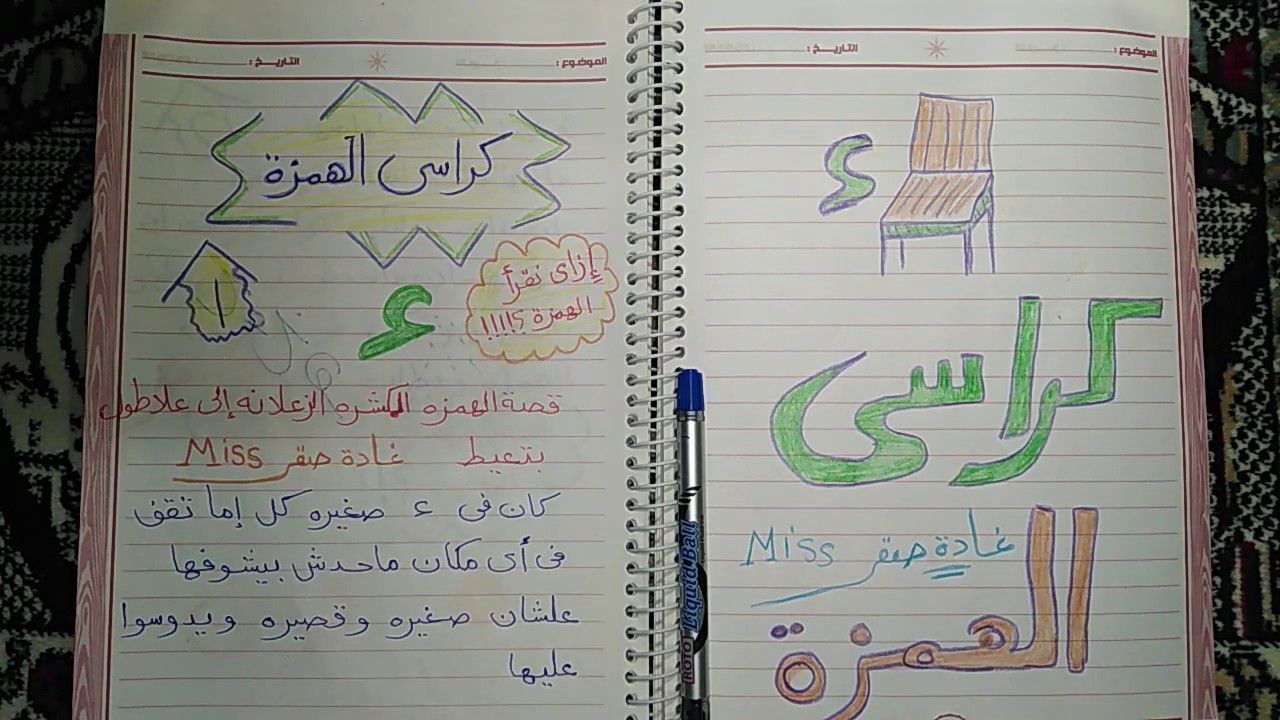 الموضوع :
التاريخ :
ء
كراسى
غادة صقر Miss
الهمزة
الموضوع :
التاريخ :
كراسى الهمزة
إزاى نقرأ
الهمزة ؟!!!!
ء
ا
قصة الهمزه الكشره الزعلانه إلى علاطول
بتعيط غادة صقر Miss
كان فى ء صغيره كل إما تقف
فى أى مكان ماحدش بيشوفها
علشان صغيره وقصيره ويدوسوا
عليها
ROTO Liquid Ball